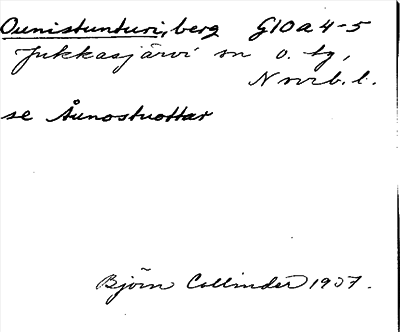 Ounistunturi, berg G10a4-5
Jukkasjärvi sn o. tg,
Norrb. l.
se Åunostuottar
Björn Collinder 1937.